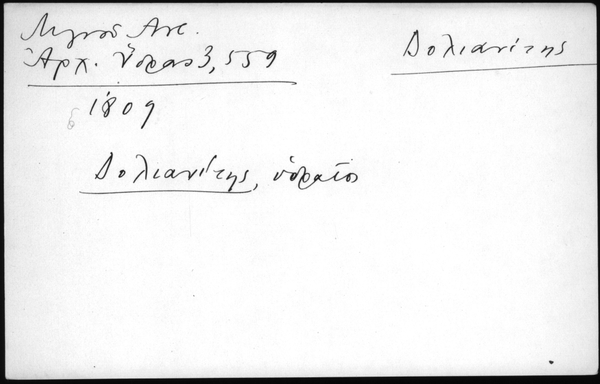 Λιγνοῦ Ἀντ.
Ἀρχ. Ὕδρας 3, 559
Δολιανίτης
1809
Δολιανίτης, ὑδραῖος